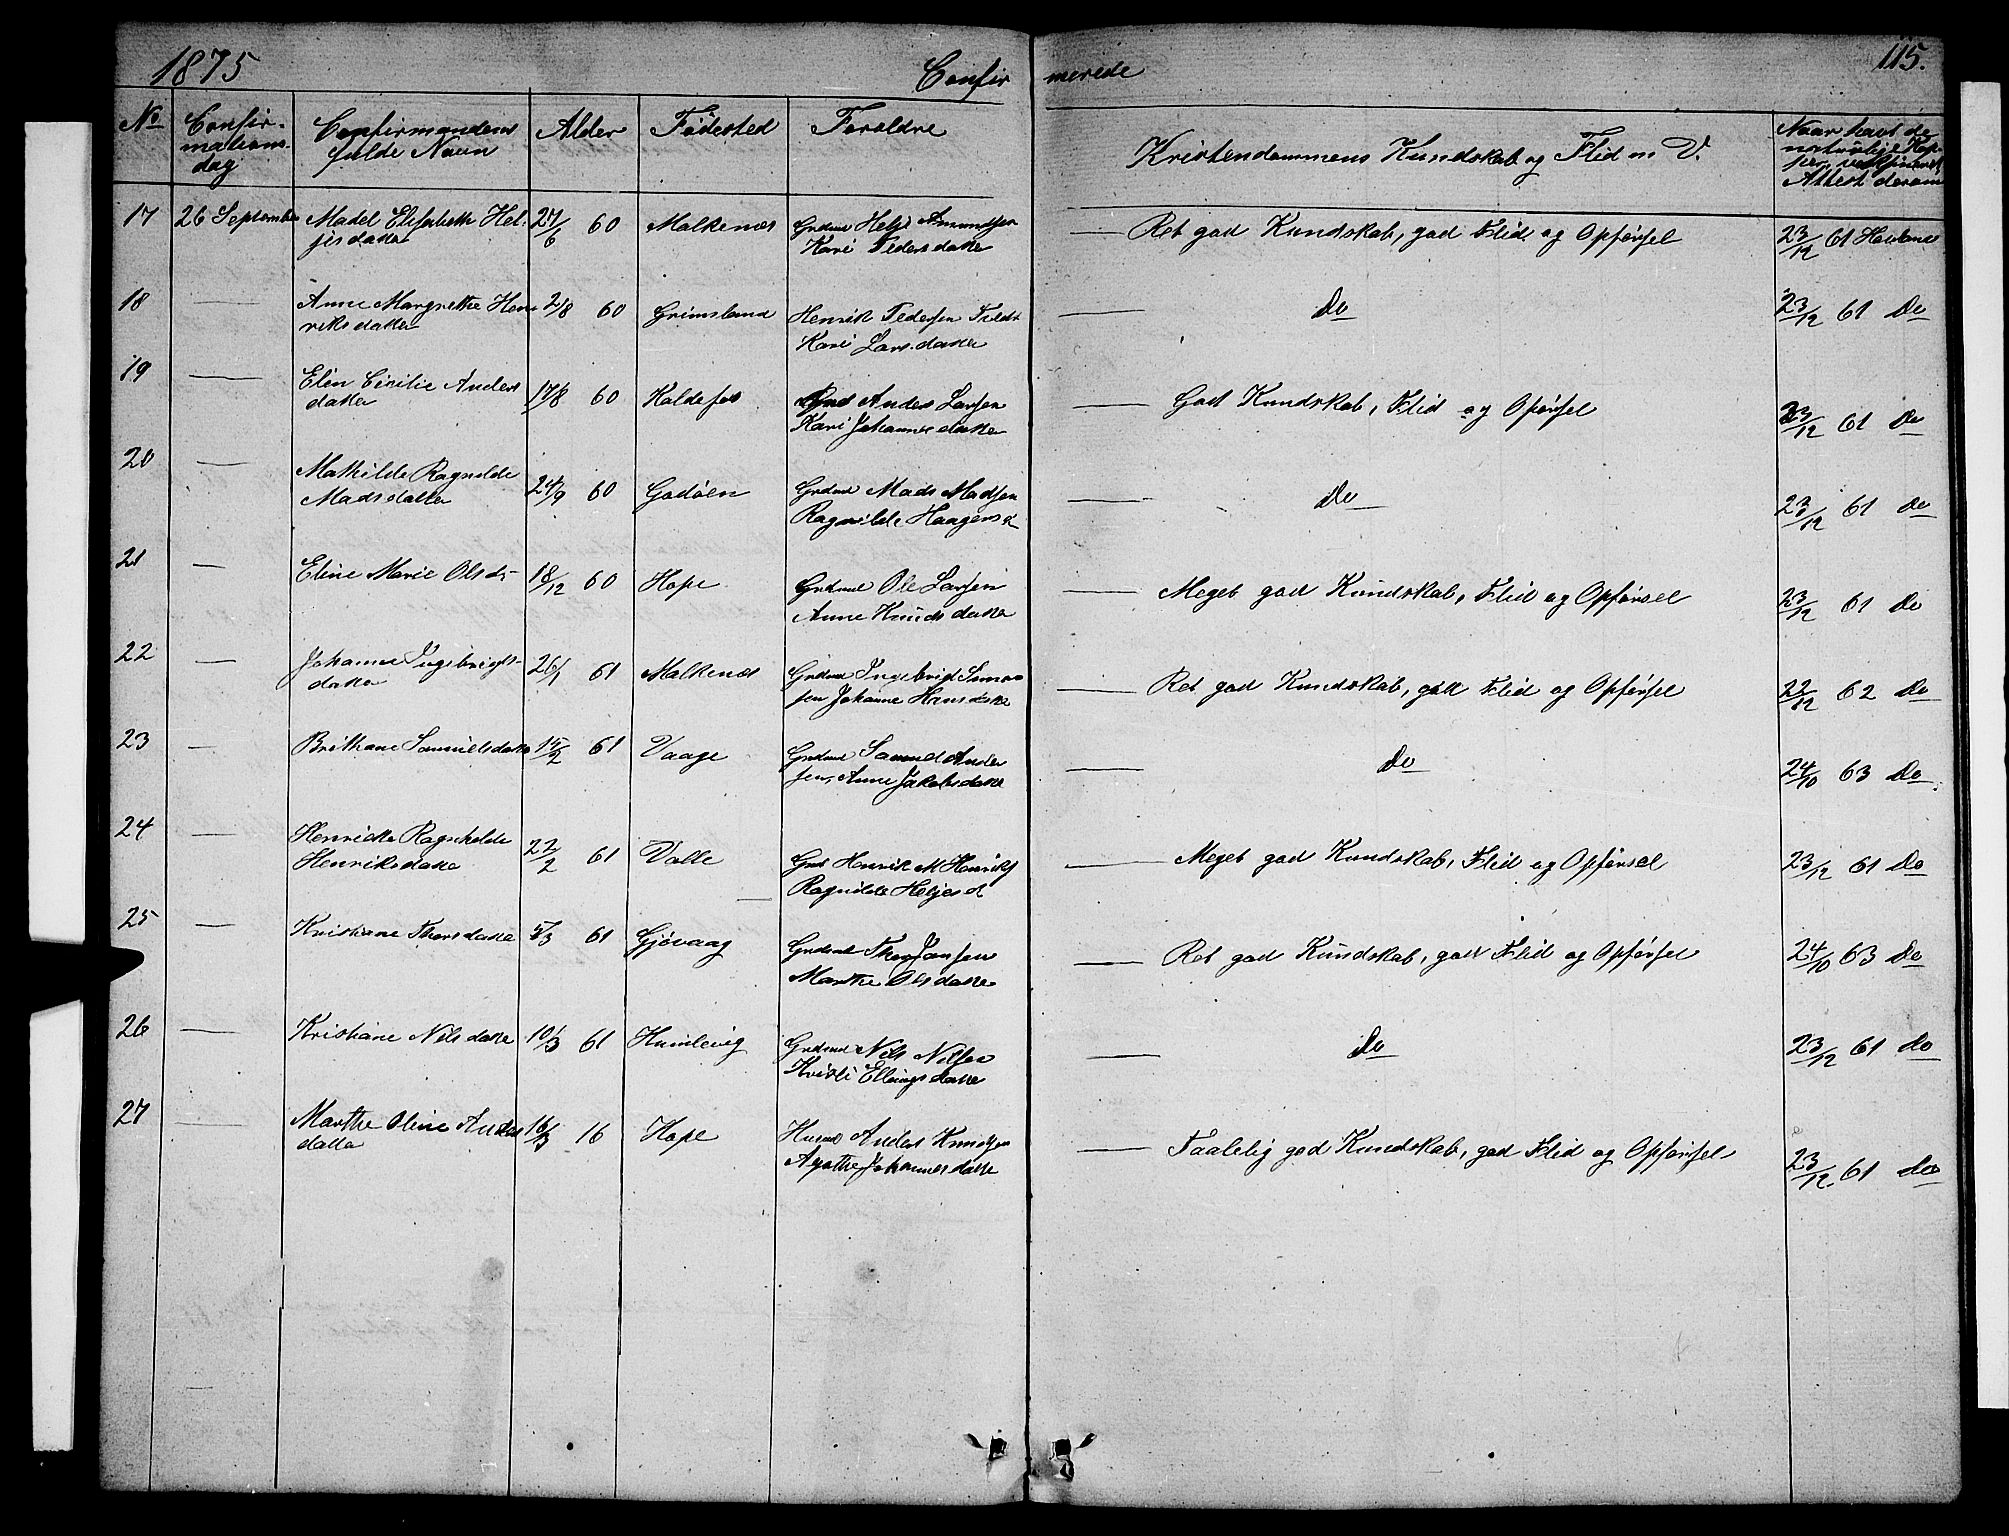 1875 Confirmerede 115.
No Confirmationsdag Confirmandens fulde Navn Alder Fødested Forældre Kristendommens Kundskab og Flid m V. Naar havt de naturlige Kopper Attest derom
17 26 September Madel Elisabeth Hel- 27/6 60 Malkenes Grdmd Helje Amundsen Ret god Kundskab, god Flid og Opførsel 23/12 61
jesdatter Kari Pedersdatter
18 — Anne Margrethe Hen- 2/8 60 Grimsland Henrik Pedersen — Do 23/12 61 Do
riksdatter Kari Larsdatter
19 — Elen Cicilie Anders 17/8 60 Koldefos Anders Larsen — God Kundskab, Flid og Opførsel 23/12 61 Do
datter Kari Johannesdatter
20 — Mathilde Ragnilde 24/9 60 Godøen Grdmd Mads Madsen — Do 23/12 61 Do
Madsdatter Ragnilde Haagens d
21 — Eline Marie Olsd- 18/12 60 Hope Grdmd Ole Larsen — Meget god Kundskab, Flid og Opførsel 23/12 61 Do
Anne Knudsdatter
22 — Johanne Ingebrigts- 26/1 61 Malkenes Grdmd Ingebrigt Simon — Ret god Kundskab, godt Flid og Opførsel 22/12 62 Do
datter sen Johanne Hansdatter
23 — Brithane Samuelsdatter 15/2 61 Vaage Grdmd Samuel Ander — Do 24/10 63 Do
sen, Anne Jakobsdatter
24 — Henrikke Ragnhilde 22/2 61 Valle Grd Henrik M Henriks — Meget god Kundskab, Flid og Opførsel 23/12 61 Do
Henriksdatter Ragnilde Heljes d
25 — Kristiane Thorsdatter 5/3 61 Gjøvaag Grdmd Thor Jansen — Ret god Kundskab, godt Flid og Opførsel 24/10 63 Do
Marthe Olsdatter
26 — Kristiane Nilsdatter 10/3 61 Humlevig Grdmd Nils Nilsen — Do 23/12 61 Do
Kristi Ellingsdatter
27 — Marthe Oline Anders 16/3 16 Hope Husmd Anders Knudsen — Taalelig god Kundskab, god Flid og Opførsel 23/12 61 Do
datter Agathe Johannesdatter